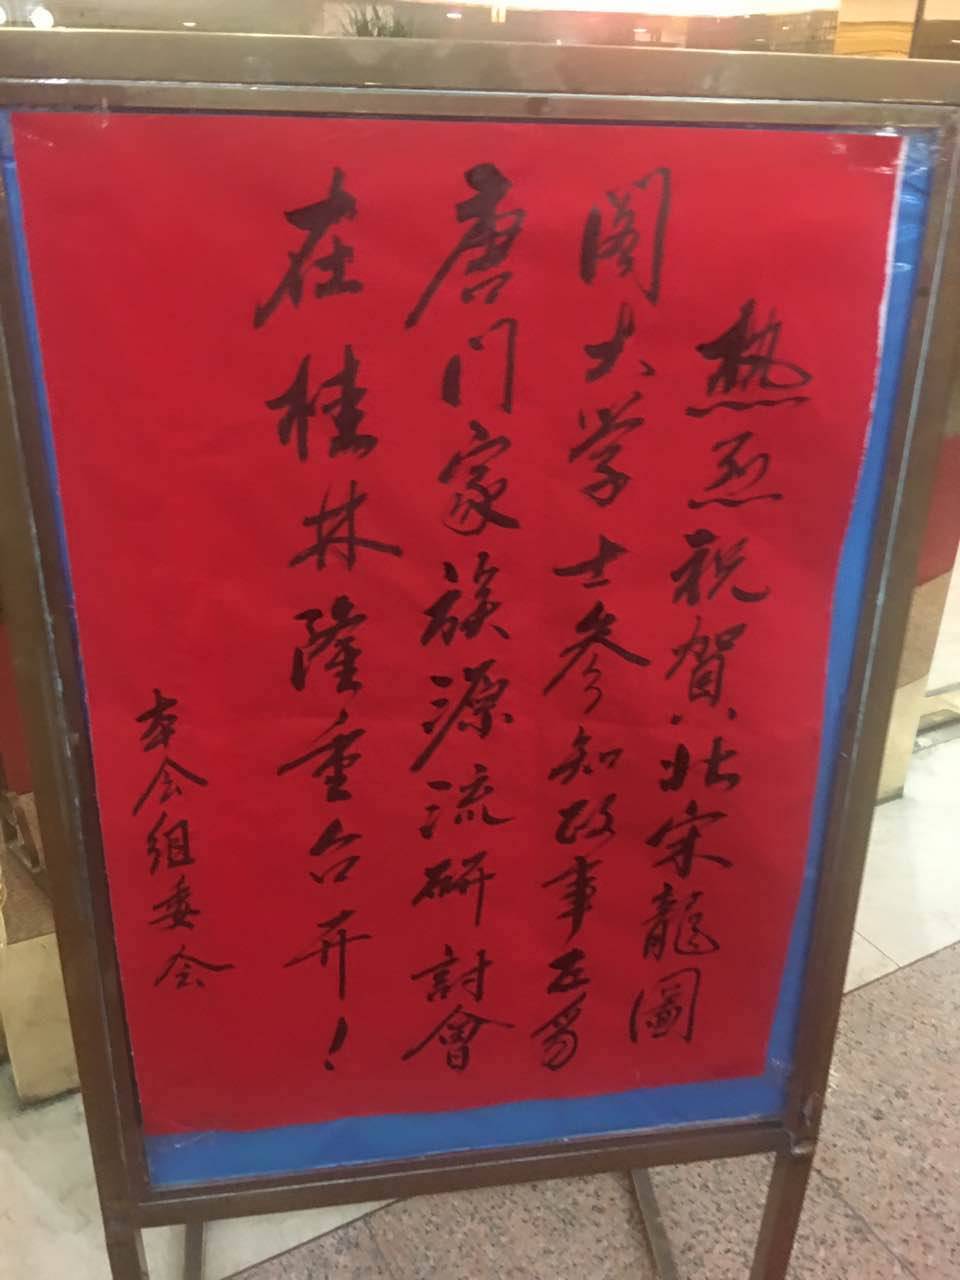 热烈祝賀北宋龍圖
阁大学士参知政事正
唐门家族源流研討會
在桂林隆重召开！
本会组委会